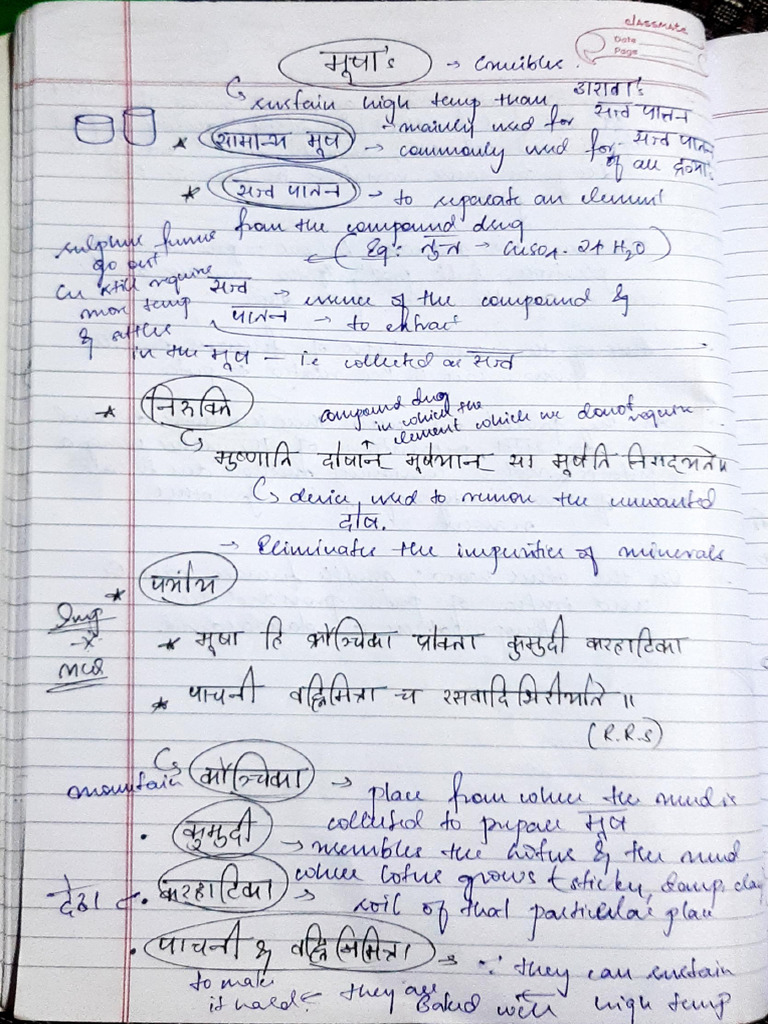 classmate
Date
Page
मूषा's → Crucibles.
↳ sustain high temp than शरावा's
- mainly used for सत्व पातन
* सामान्य मूषा → commonly used for सत्व पातन
of all द्रव्याः
* सत्व पातन → to separate an element
from the compound drug
(Eg: तुत्थ → CuSO4. 2H2O)
sulphur fumes
go out
Cu still require
more temp
& settles
in the मूषा — is collected as सत्व
सत्व → essence of the compound &
पातन → to extract
* निरुक्ति
compound drug
in which the
element which we donot require
↳ मुष्णाति दोषान् मूषेयान् सा मूषेति निगद्यते॥
↳ device used to remove the unwanted
दोष.
→ Eliminates the impurities of minerals
* पर्याय
Imp
-x-
MCQ
* मूषा हि क्रौञ्चिका प्रोक्ता कुमुदी करहाटिका
* पाचनी वह्निमित्रा च रसवादिभिरीर्यते॥
(R.R.S)
↳ क्रौञ्चिका → place from where the mud is
mountain
collected to prepare मूषा
• कुमुदी → resembles the lotus & the mud
where lotus grows (sticky, damp, clay
देश ← • करहाटिका → soil of that particular place
• पाचनी & वह्निमित्रा → ∵ they can sustain
high temp
to make
it hard ← they are Baked well